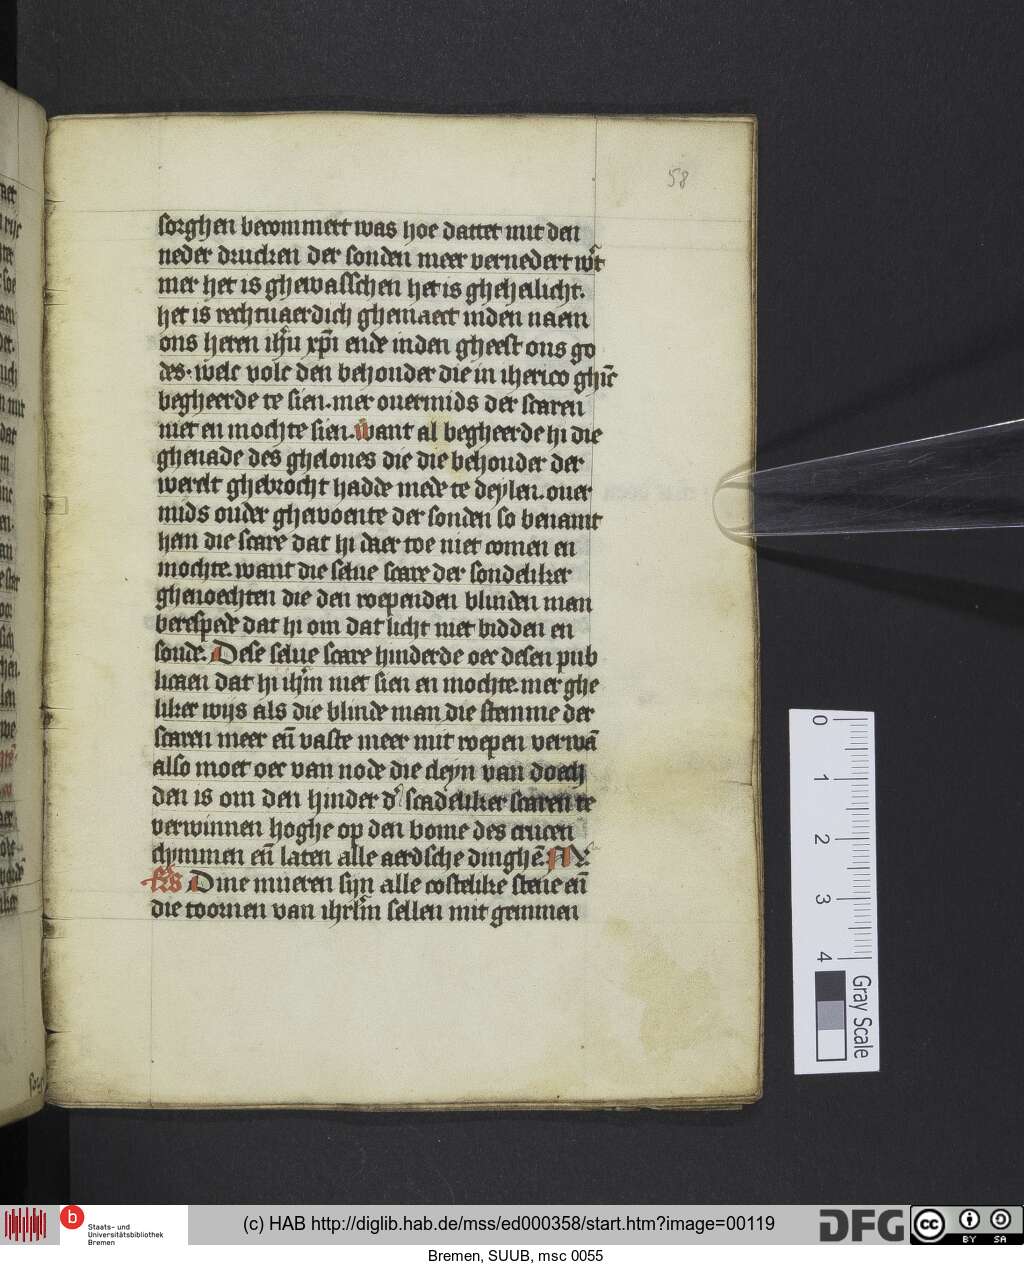 58
sorghen becommert was hoe dattet mit den
neder drucken der sonden meer vernedert wͬt
mer het is ghewasschen het is gheheilicht.
het is rechtuaerdich ghemaect inden naem
ons heren ihū xp̄i ende inden gheest ons go
des. welc volc den behouder die in iherico ghīc
begheerde te sien. mer ouermids der scaren
niet en mochte sien. want al begheerde hi die
ghenade des gheloues die die behouder der
werelt ghebrocht hadde mede te deylen. ouer
mids ouder ghewoente der sonden so benamt
hem die scare dat hi daer toe niet comen en
mochte. want die selue scare der sondeliker
ghenoechten die den roependen blinden man
berespede dat hi om dat licht niet bidden en
soude. Dese selue scare hinderde oec desen pub
licaen dat hi ihm̄ niet sien en mochte. mer ghe
liker wijs als die blinde man die stemme der
scaren meer eñ vaste meer mit roepen verwā
also moet oec van node die cleyn van doech
den is om den hinder d' scadeliker scaren te
verwinnen hoghe op den bome des crucen
clymmen eñ laten alle aerdsche dinghē.
Dine mueren sijn alle costelike stene eñ
die toornen van ihrlm̄ sellen mit gemmen
0
1
2
3
4
Gray Scale
b
Staats- und
Universitätsbibliothek
Bremen
(c) HAB http://diglib.hab.de/mss/ed000358/start.htm?image=00119
DFG
cc
BY SA
Bremen, SUUB, msc 0055